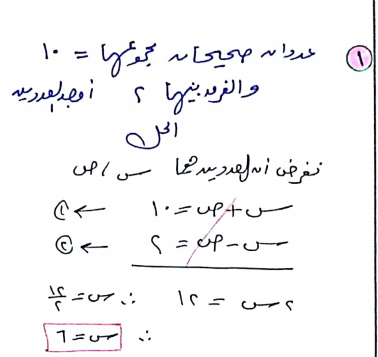 ① عددان صحيحان مجموعهما = ١٠
والفرق بينهما ٢ أوجد العددين
الحل
نفرض أن العددين هما س / ص
س + ص = ١٠ ← ①
س - ص = ٢ ← ②
٢س = ١٢ ∴ س = ١٢/٢
∴ س = ٦